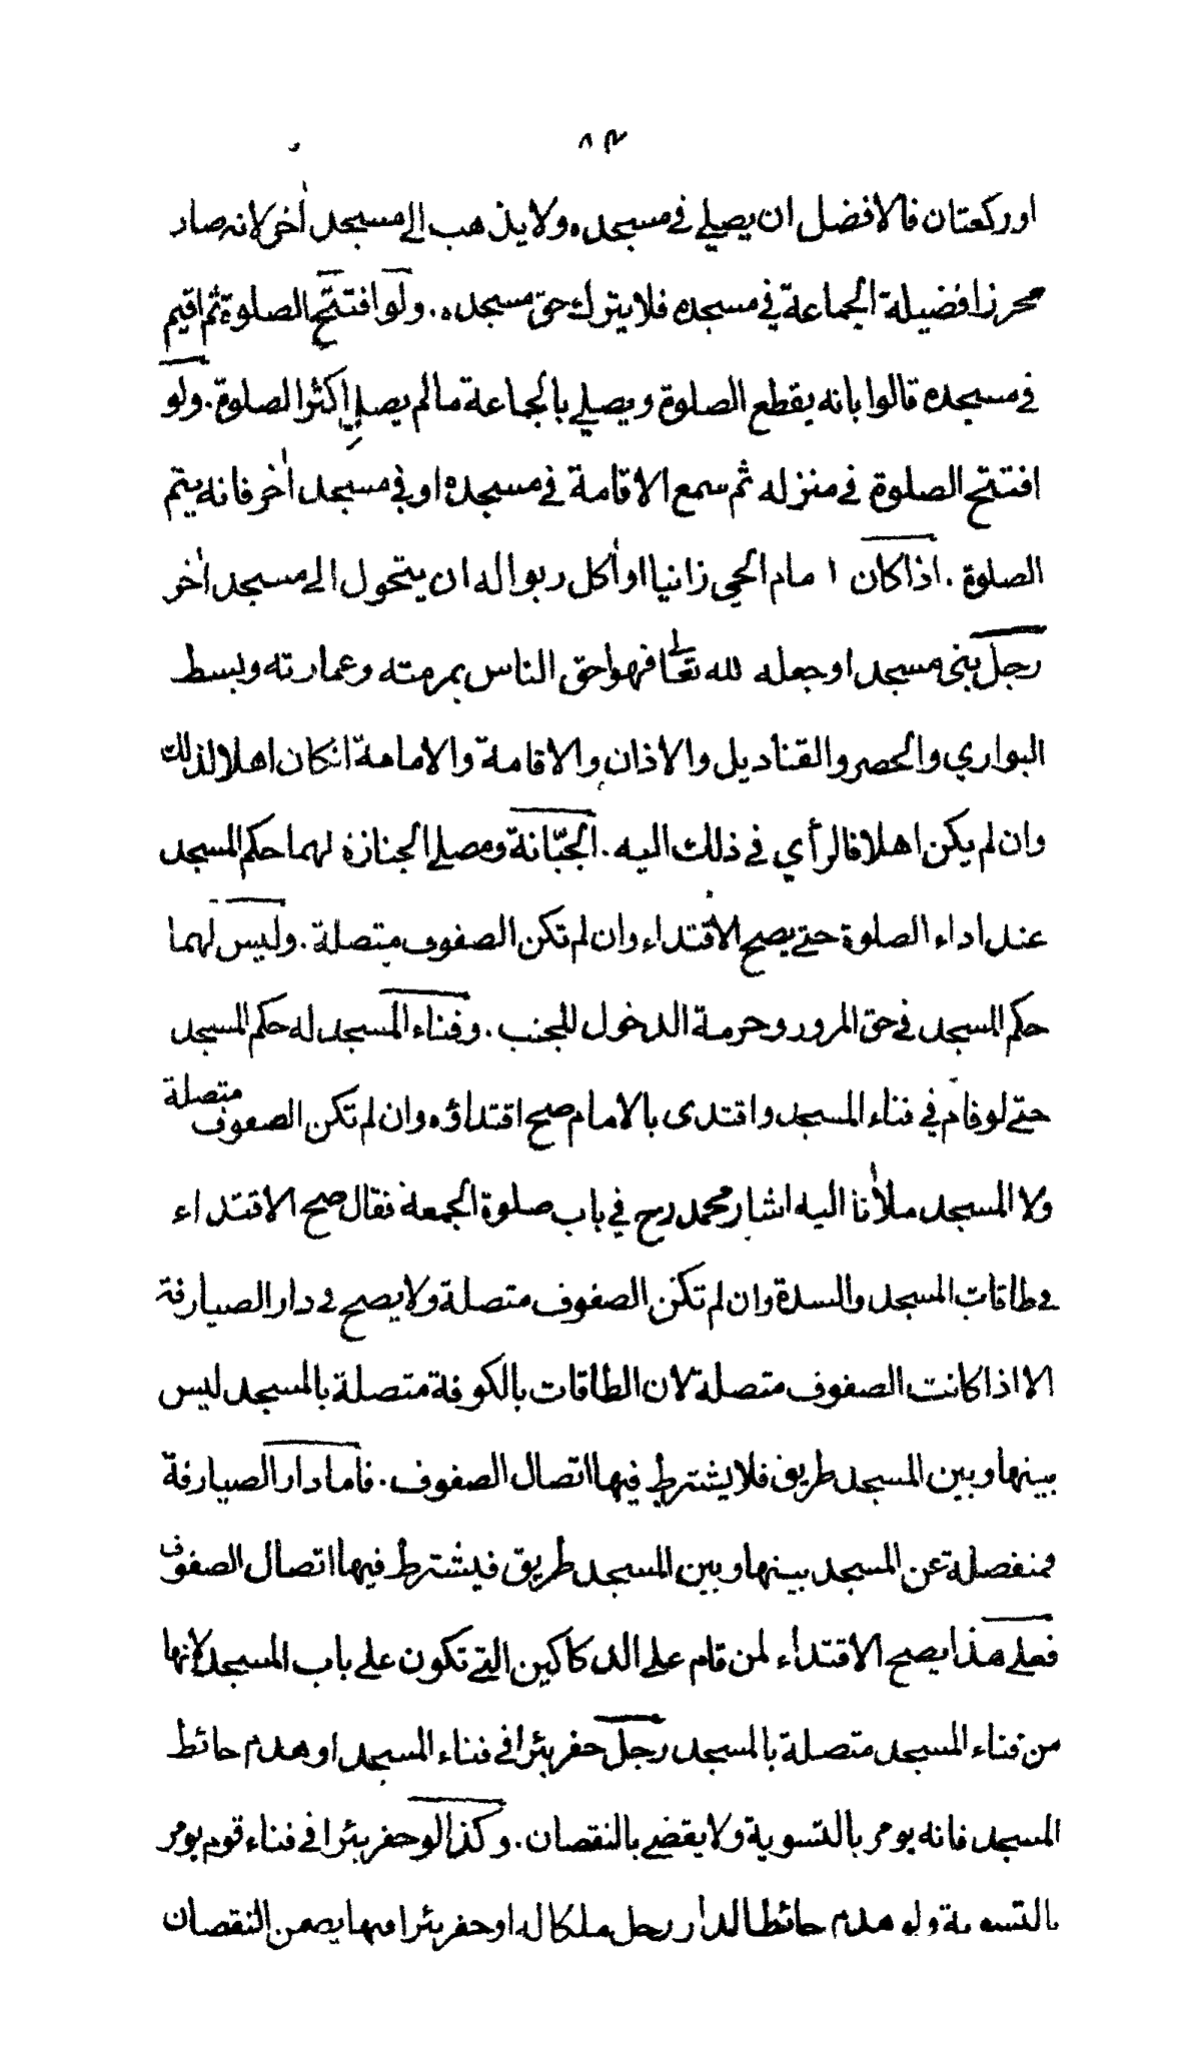 ٨٣
او ركعتان فالافضل ان يصلي في مسجده ولا يذهب الى مسجد اٰخر لانه صار
محرزا فضيلة الجماعة في مسجده فلا يترك حق مسجده . ولو افتتح الصلوة ثم اقيم
في مسجده قالوا بانه يقطع الصلوة ويصلي بالجماعة مالم يصل اكثر الصلوة . ولو
افتتح الصلوة في منزله ثم سمع الاقامة في مسجده او في مسجد اٰخر فانه يتم
الصلوة . اذا كان امام الحي زانيا او اٰكل ربوا له ان يتحول الى مسجد اٰخر
رجل بنى مسجدا وجعله لله تعالٰى فهو احق الناس بمرمته وعمارته وبسط
البواري والحصر والقناديل والاذان والاقامة والامامة انكان اهلا لذلك
وان لم يكن اهلا فالرأي في ذلك اليه . الجبّانة ومصلى الجنازة لهما حكم المسجد
عند اداء الصلوة حتى يصح الاقتداء وان لم تكن الصفوف متصلة . وليس لهما
حكم المسجد في حق المرور وحرمة الدخول للجنب . وفناء المسجد له حكم المسجد
حتى لو قام في فناء المسجد واقتدى بالامام صح اقتداؤه وان لم تكن الصفوف متصلة
ولا المسجد ملاٰنا اليه اشار محمد رح في باب صلوة الجمعة فقال صح الاقتداء
في طاقات المسجد والسدة وان لم تكن الصفوف متصلة ولا يصح في دار الصيارفة
الا اذا كانت الصفوف متصلة لان الطاقات بالكوفة متصلة بالمسجد ليس
بينها وبين المسجد طريق فلا يشترط فيها اتصال الصفوف . فاما دار الصيارفة
فمنفصلة عن المسجد بينها وبين المسجد طريق فيشترط فيها اتصال الصفوف
فعلى هذا يصح الاقتداء لمن قام على الدكاكين التي تكون على باب المسجد لانها
من فناء المسجد متصلة بالمسجد رجل حفر بئرا في فناء المسجد او هدم حائط
المسجد فانه يومر بالتسوية ولا يقضى بالنقصان . وكذا لو حفر بئرا في فناء قوم يومر
بالتسوية ولو هدم حائط الدار رجل ملكا له او حفر بئرا فيها يضمن النقصان